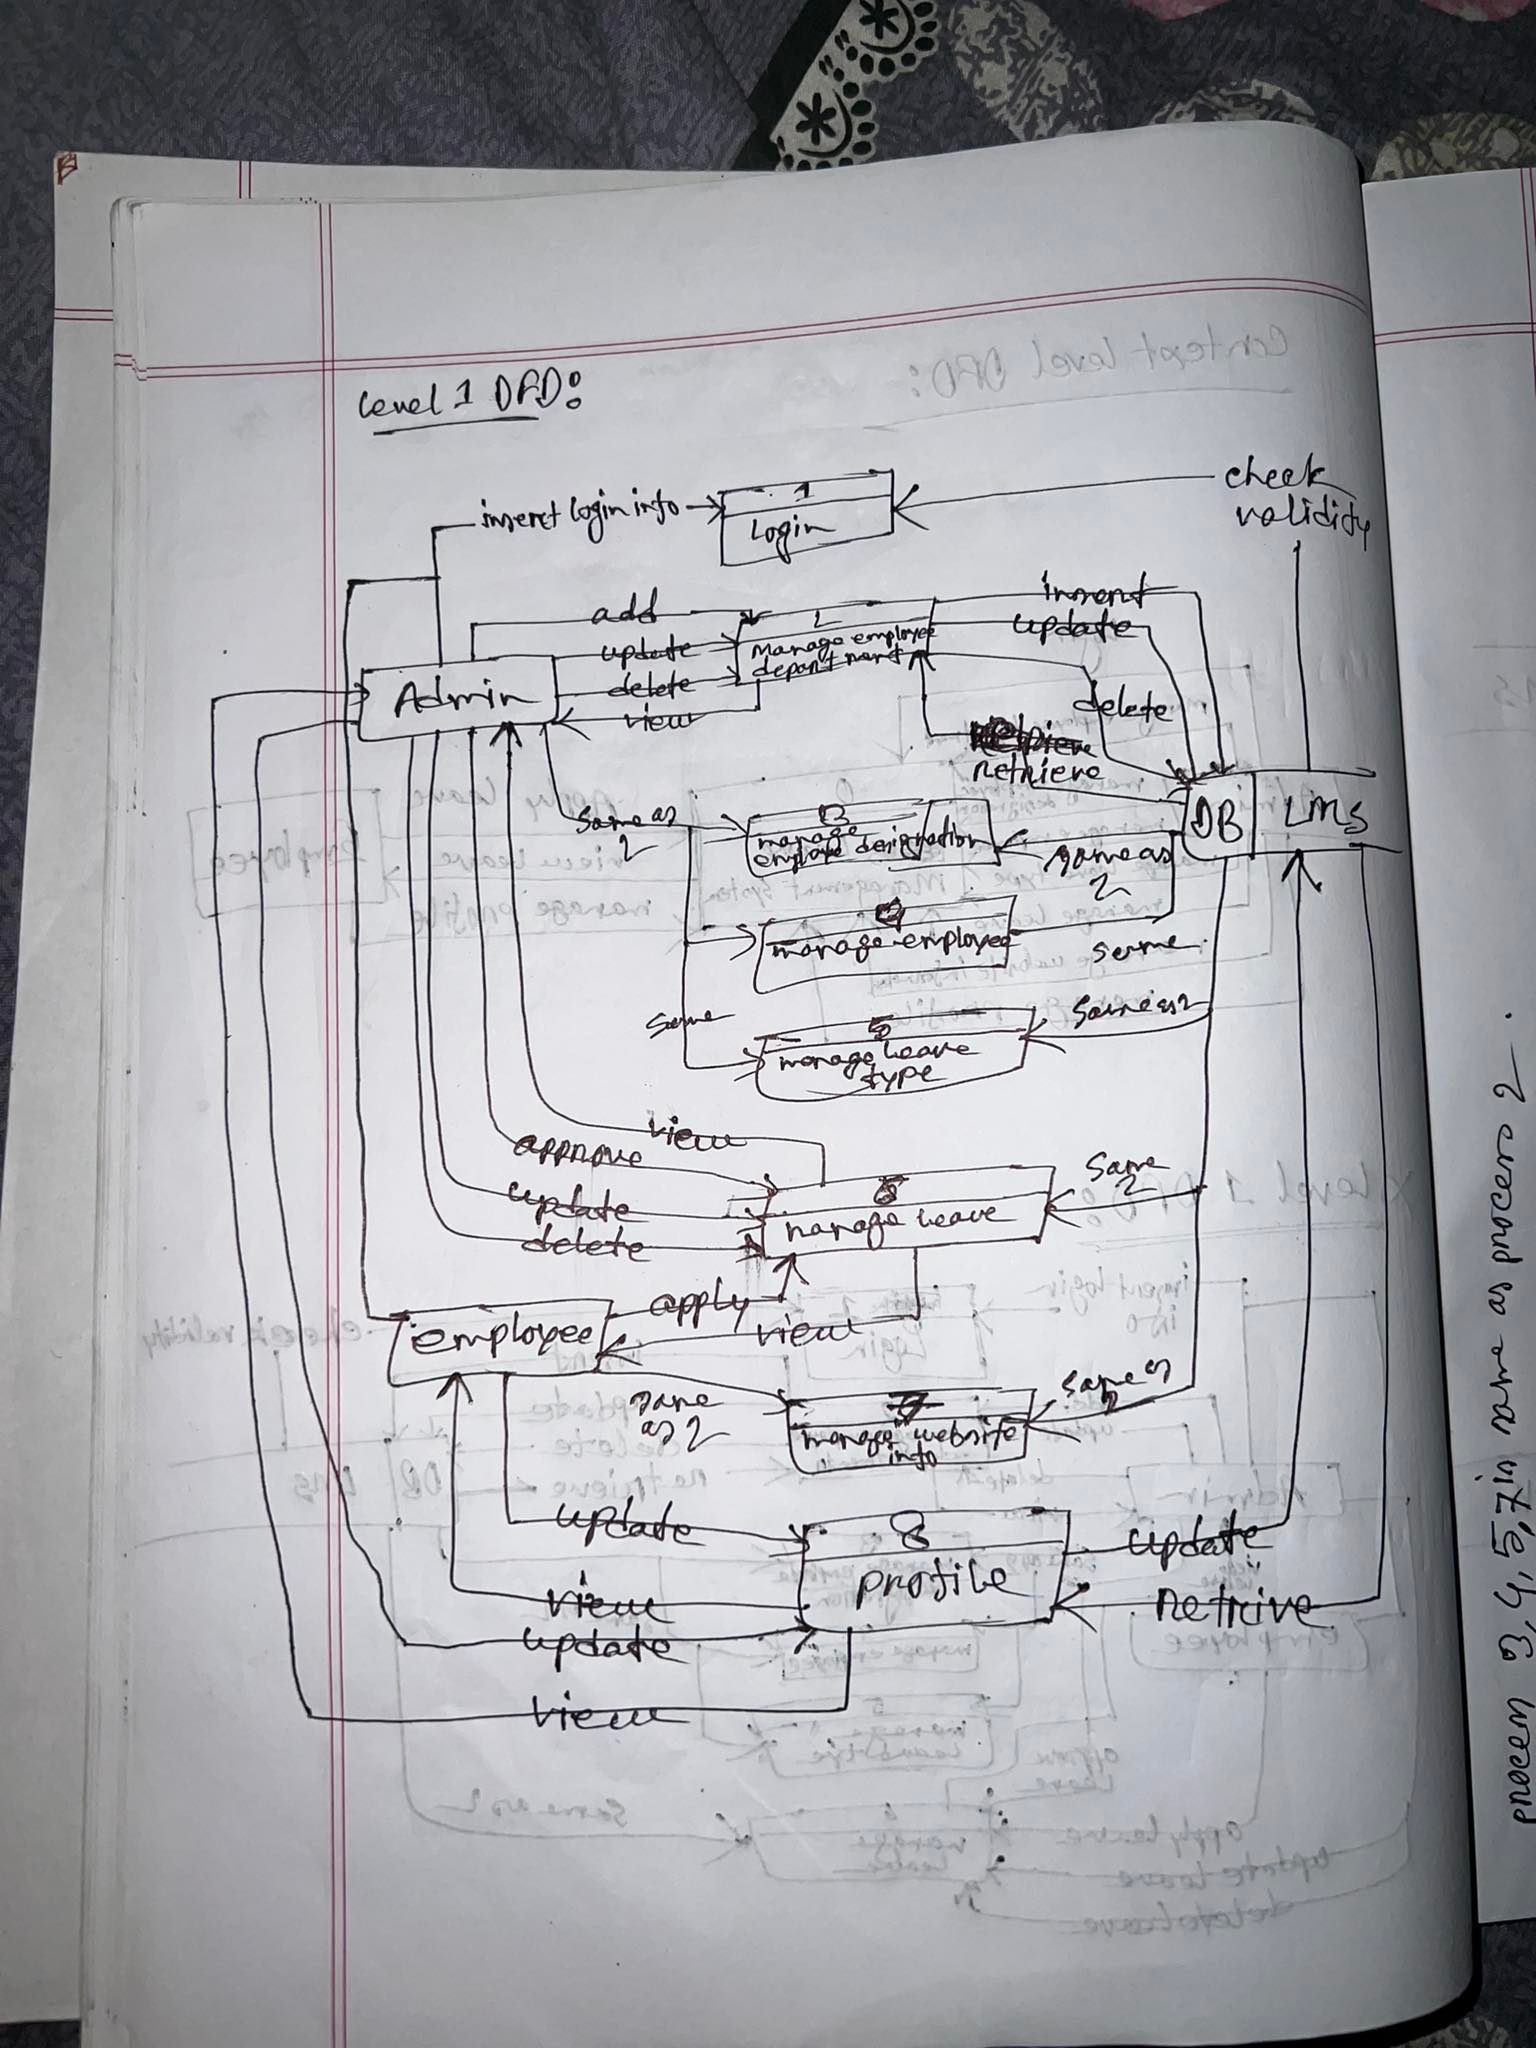 Level 1 DFD:
insert login info
1
Login
check
validity
add
update
delete
view
2
manage employee
department
insert
update
delete
retrieve
Admin
DB
LMS
same as
2
3
manage
employee designation
same as
2
4
manage employee
same
same
5
manage leave
type
same as 2
view
approve
update
delete
manage leave
same
2
employee
apply
view
same
as 2
7
manage website
info
same as
2
update
view
update
view
8
profile
update
retrive
process 3, 4, 5, 7 is same as process 2.